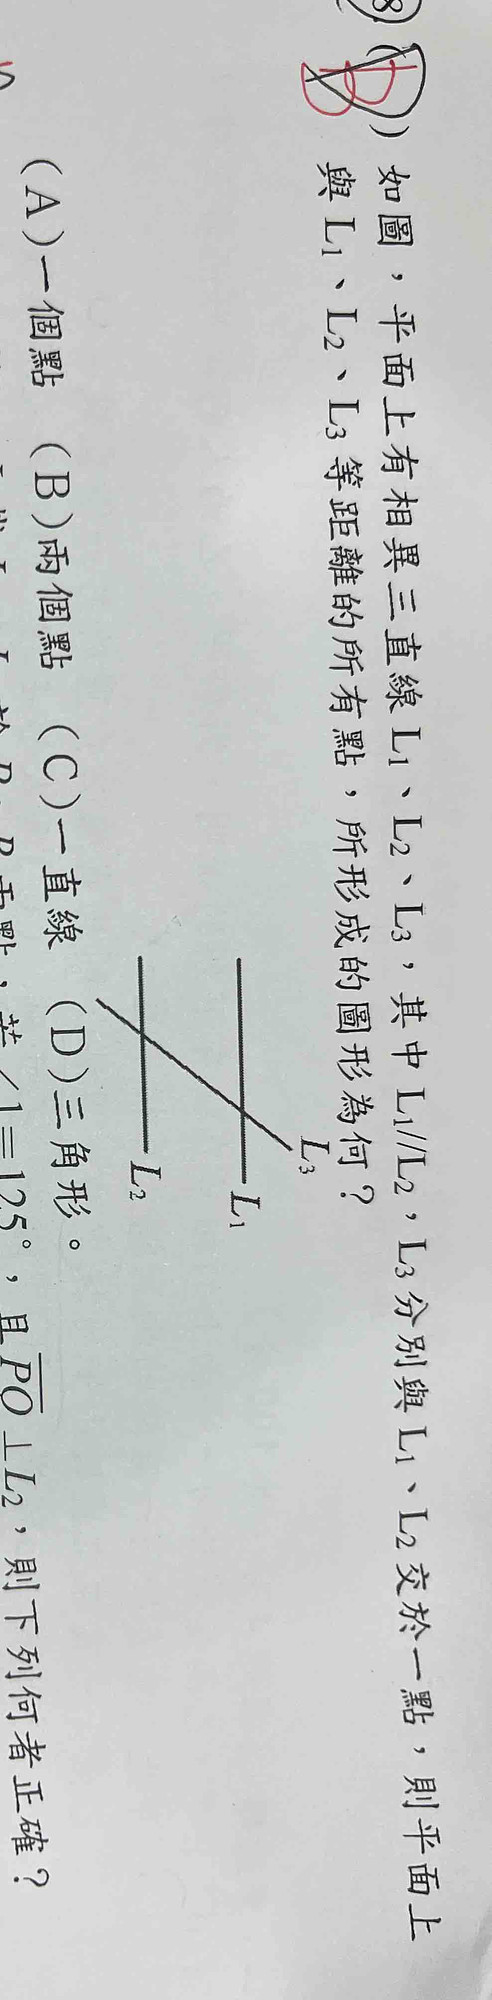 8
(B)如圖，平面上有相異三直線 L₁、L₂、L₃，其中 L₁//L₂，L₃分別與 L₁、L₂交於一點，則平面上
與 L₁、L₂、L₃等距離的所有點，所形成的圖形為何？
L₃
L₁
L₂
(A)一個點 (B)兩個點 (C)一直線 (D)三角形。
兩點，若∠1=125°，且PQ⊥L₂，則下列何者正確？